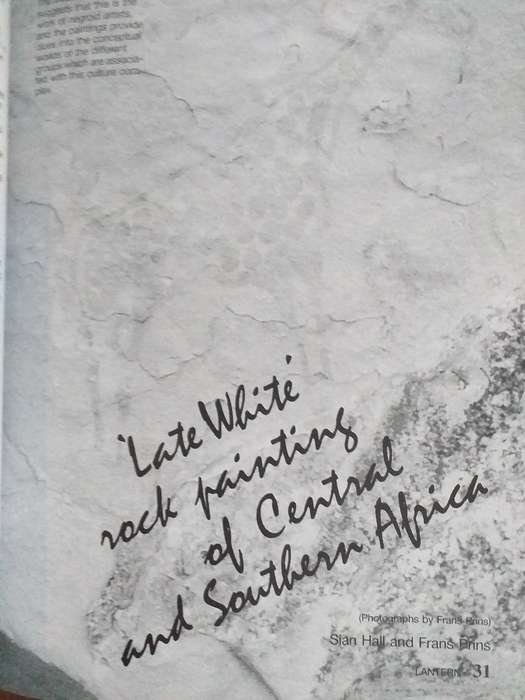 suggests that this is the
work of negroid artists,
and the paintings provide
clues into the conceptual
worlds of the different
groups which are associa-
ted with this culture com-
plex.
'Late White'
rock painting
of Central
and Southern Africa
(Photographs by Frans Prins)
Sian Hall and Frans Prins
LANTERN 31